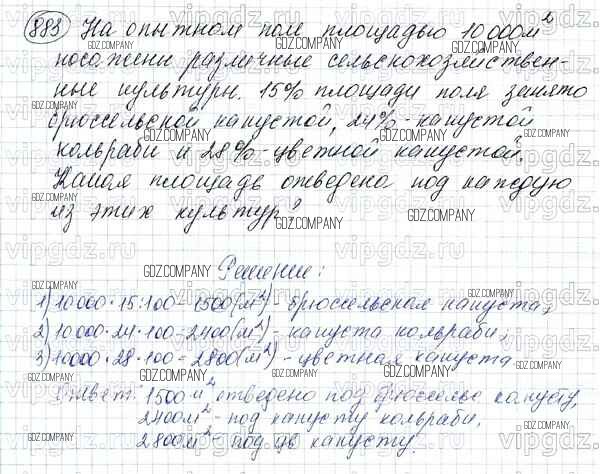 883 На опытном поле площадью 10 000 м²
посажены различные сельскохозяйствен-
ные культуры. 15% площади поля занято
брюссельской капустой, 24% - капустой
кольраби и 28% - цветной капустой.
Какая площадь отведена под каждую
из этих культур?
Решение:
1) 10 000 · 15 : 100 = 1500 (м²) - брюссельская капуста;
2) 10 000 · 24 : 100 = 2400 (м²) - капуста кольраби;
3) 10000 · 28 : 100 = 2800 (м²) - цветная капуста.
Ответ: 1500 м² отведено под брюссельс капусту,
2400 м² - под капусту кольраби,
2800 м² - под цв капусту.